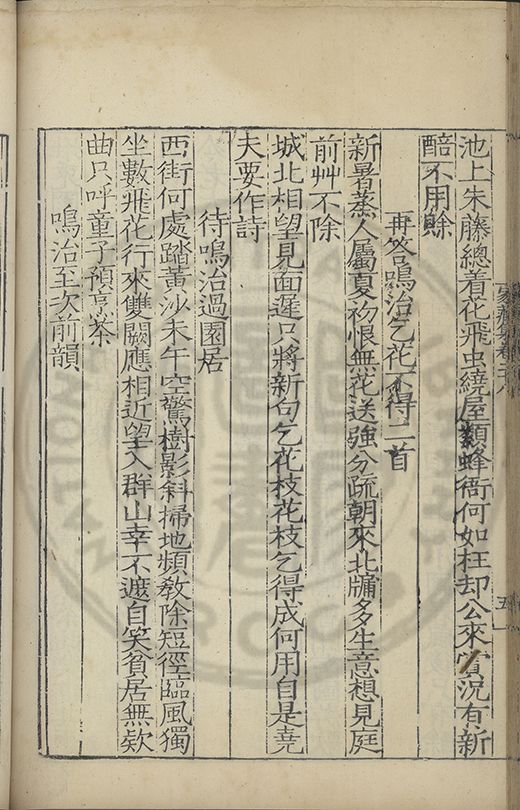 池上朱藤總着花飛虫繞屋類蜂衙何如枉却公來賞況有新
醅不用賒
再答鳴治乞花不得二首
新暑蒸人屬夏初恨無花送強分疏朝來北牗多生意想見庭
前艸不除
城北相望見面遲只將新句乞花枝花枝乞得成何用自是堯
夫要作詩
待鳴治過園居
西街何處踏黃沙未午空驚樹影斜掃地頻教除短徑臨風獨
坐數飛花行來雙闕應相近望入群山幸不遮自笑貧居無欵
曲只呼童子預烹茶
鳴治至次前韻